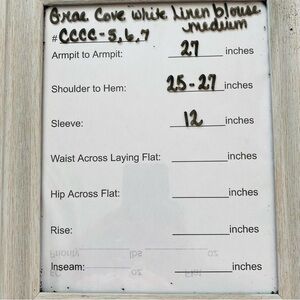 Grae Cove white Linen blouse
medium
# CCCC-5,6,7
Armpit to Armpit: 27 inches
Shoulder to Hem: 25-27 inches
Sleeve: 12 inches
Waist Across Laying Flat: inches
Hip Across Flat: inches
Rise: inches
Priority lbs oz
Inseam: inches
Flat oz